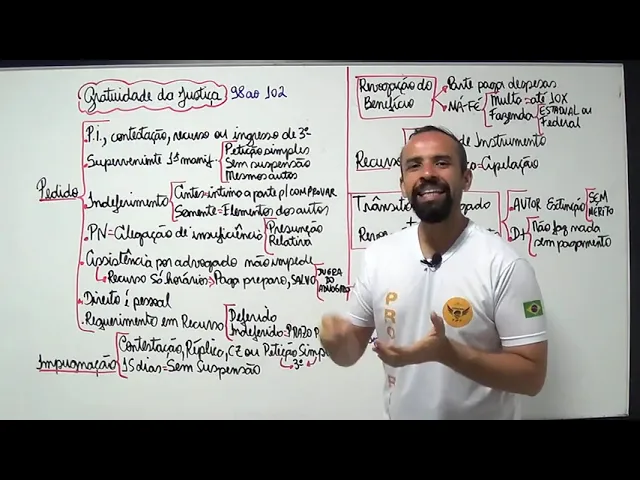 Gratuidade da Justiça 98 ao 102
Pedido
P.I., contestação, recurso ou ingresso de 3º
Superveniente 1ª manif.
Petição simples
Sem suspensão
Mesmos autos
Indeferimento
Antes = intimo a parte p/ COMPROVAR
Somente = Elementos dos autos
PN = Alegação de insuficiência
Presunção
Relativa
Assistência por advogado não impede
Recurso só honorários = Paga preparo, SALVO
JUGRA
DO
ADVOGADO
Direito é pessoal
Requerimento em Recurso
Deferido
Indeferido = PRAZO P
Impugnação
Contestação, Réplica, CZ ou Petição Simp
3º
15 dias = Sem Suspensão
Revogação do
Benefício
Parte paga despesas
MÁ-FÉ
Multa = até 10X
Fazenda
ESTADUAL ou
Federal
Recurs
de Instrumento
= Apelação
Trânsito
gado
Revo
AUTOR Extinção
SEM
MÉRITO
D+
Não faz nada
sem pagamento
PRO